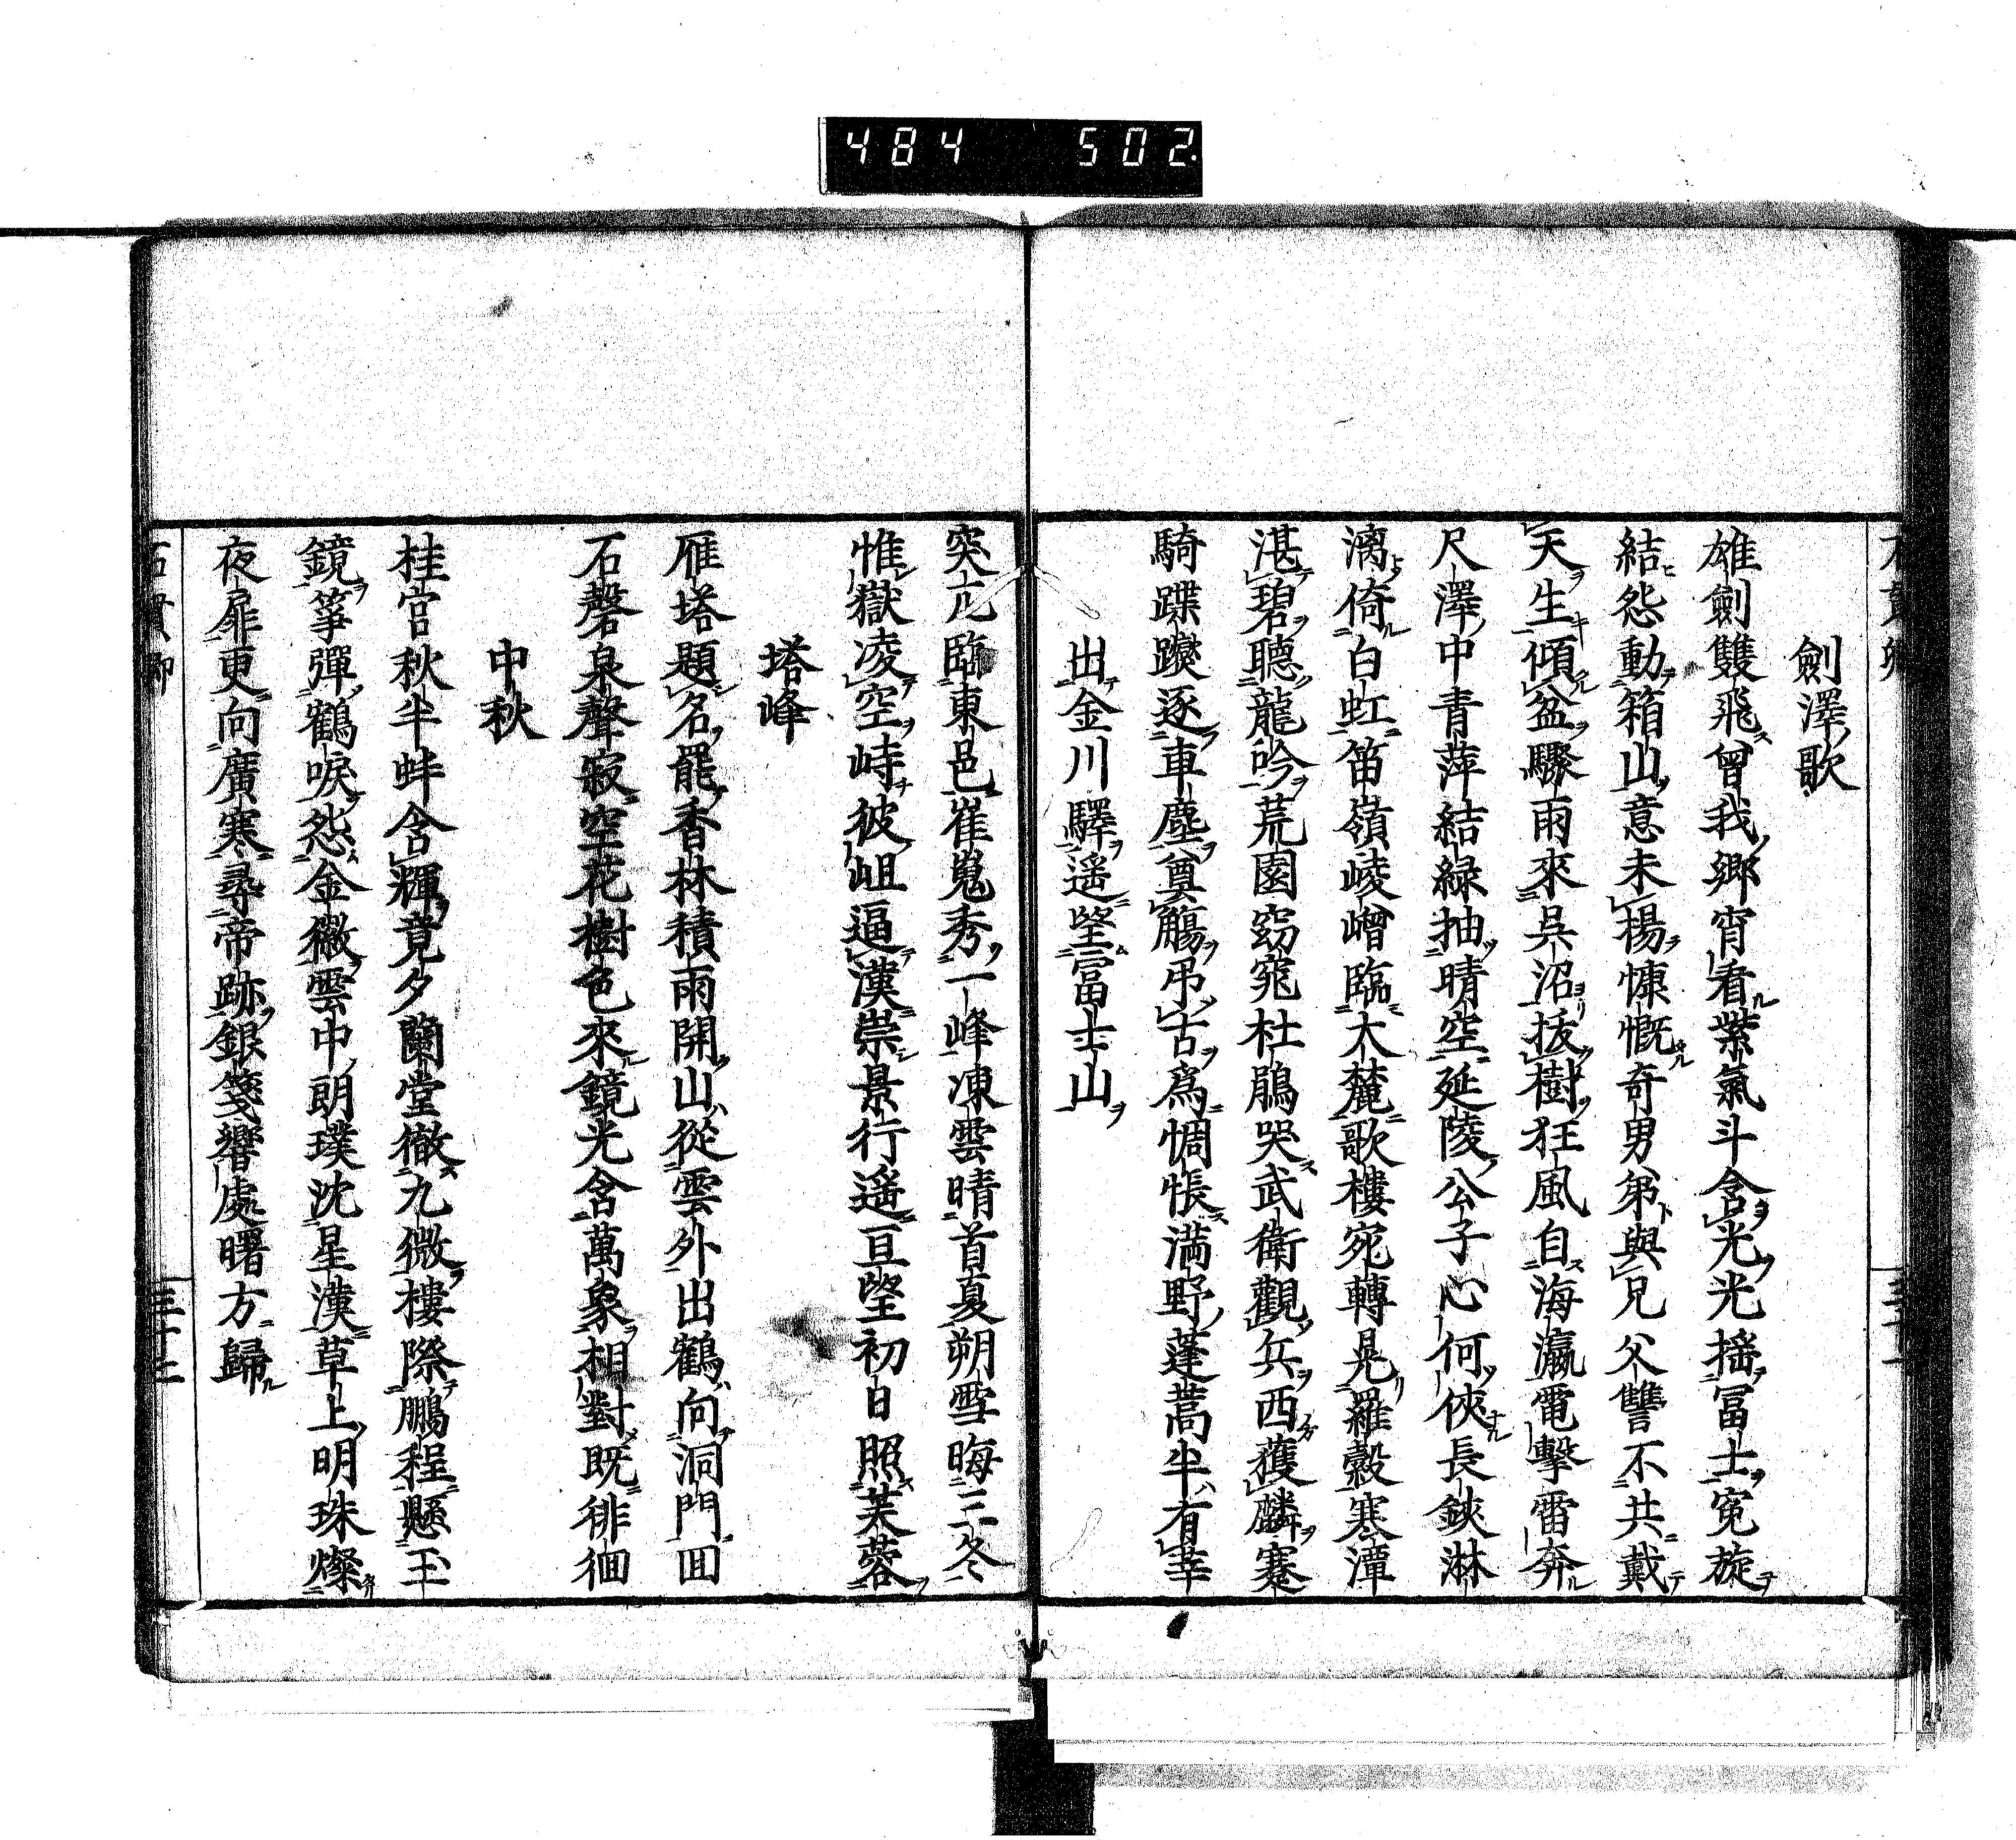 484 502
劍澤歌
雄劍雙飛曾我鄉宵看紫氣斗含光光搖冨士寃旋
結怨動箱山意未揚慷慨奇男弟與兄父讐不共戴
天生傾盆驟雨來吳沼拔樹狂風自海瀛電擊雷奔
尺澤中青萍結緑抽晴空延陵公子心何俠長鋏淋
漓倚白虹笛嶺崚嶒臨大麓歌樓宛轉晃羅縠寒潭
湛碧聽龍吟荒園窈窕杜鵑哭武衛觀兵西獲麟蹇
騎蹀躞逐車塵奠觴吊古爲惆悵満野蓬蒿半有莘
出金川驛遥望冨士山
突兀臨東邑崔嵬秀一峰凍雲晴首夏朔雪晦三冬
惟獄凌空峙彼岨逼漢崇景行遥亘望初日照芙蓉
塔峰
雁塔題名罷香林積雨開山從雲外出鶴向洞門囬
石磬泉聲寂空花樹色來鏡光含萬象相對既徘徊
中秋
桂官秋半蚌含輝竟夕蘭堂徹九微樓際鵬程懸玉
鏡筝彈鶴唳怨金徽雲中朗璞沈星漢草上明珠燦
夜扉更向廣寒尋帝跡銀箋響處曙方歸